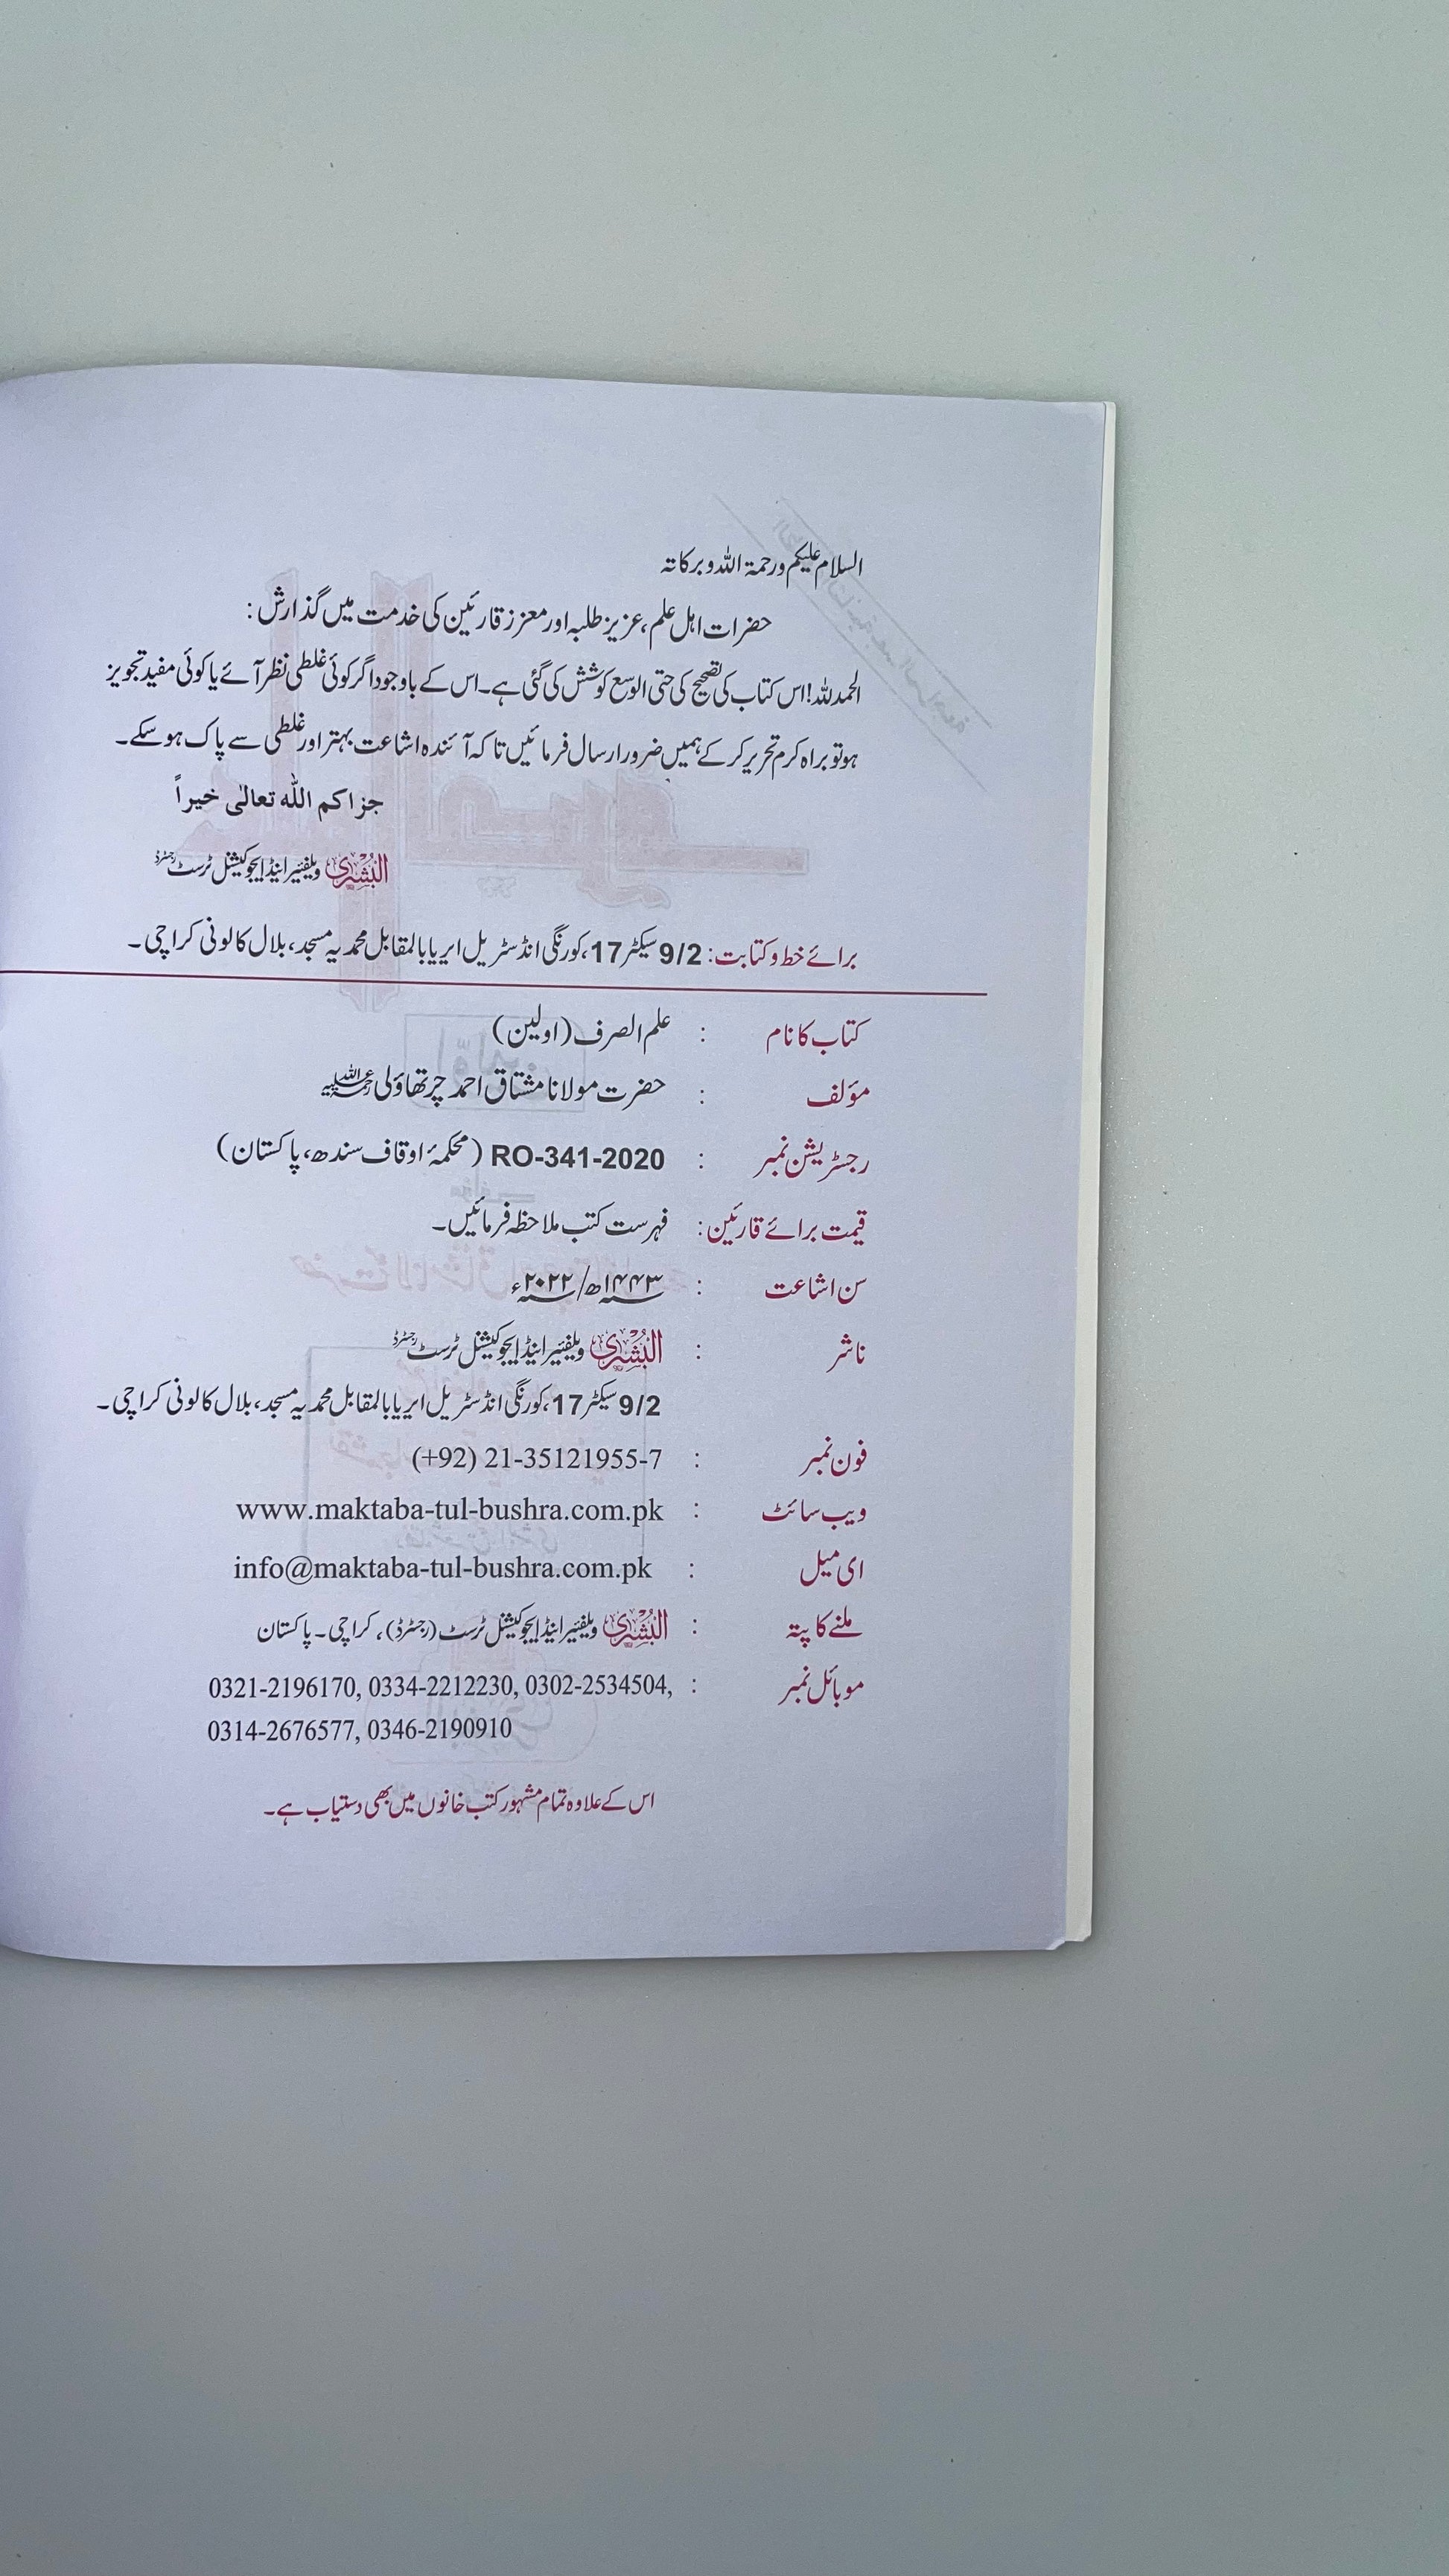 السلام علیکم ورحمۃ اللہ وبرکاتہ
حضرات اہل علم، عزیز طلبہ اور معزز قارئین کی خدمت میں گذارش:
الحمدللہ! اس کتاب کی تصحیح کی حتی الوسع کوشش کی گئی ہے۔ اس کے باوجود اگر کوئی غلطی نظر آئے یا کوئی مفید تجویز
ہو تو براہ کرم تحریر کر کے ہمیں ضرور ارسال فرمائیں تاکہ آئندہ اشاعت بہتر اور غلطی سے پاک ہو سکے۔
جزاکم اللہ تعالٰی خیراً
البُشریٰ ویلفئیر اینڈ ایجوکیشنل ٹرسٹ رجسٹرڈ
برائے خط و کتابت: 9/2 سیکٹر 17، کورنگی انڈسٹریل ایریا بالمقابل محمدیہ مسجد، بلال کالونی کراچی۔
کتاب کا نام : علم الصرف (اولین)
مؤلف : حضرت مولانا مشتاق احمد چرتھاؤلی رحمۃ اللہ علیہ
رجسٹریشن نمبر : RO-341-2020 (محکمۂ اوقاف سندھ، پاکستان)
قیمت برائے قارئین: فہرست کتب ملاحظہ فرمائیں۔
سن اشاعت : ۱۴۴۳ھ/۲۰۲۲ء
ناشر : البُشریٰ ویلفئیر اینڈ ایجوکیشنل ٹرسٹ رجسٹرڈ
9/2 سیکٹر 17، کورنگی انڈسٹریل ایریا بالمقابل محمدیہ مسجد، بلال کالونی کراچی۔
فون نمبر : (+92) 21-35121955-7
ویب سائٹ : www.maktaba-tul-bushra.com.pk
ای میل : info@maktaba-tul-bushra.com.pk
ملنے کا پتہ : البُشریٰ ویلفئیر اینڈ ایجوکیشنل ٹرسٹ (رجسٹرڈ)، کراچی۔ پاکستان
موبائل نمبر : 0321-2196170, 0334-2212230, 0302-2534504,
0314-2676577, 0346-2190910
اس کے علاوہ تمام مشہور کتب خانوں میں بھی دستیاب ہے۔